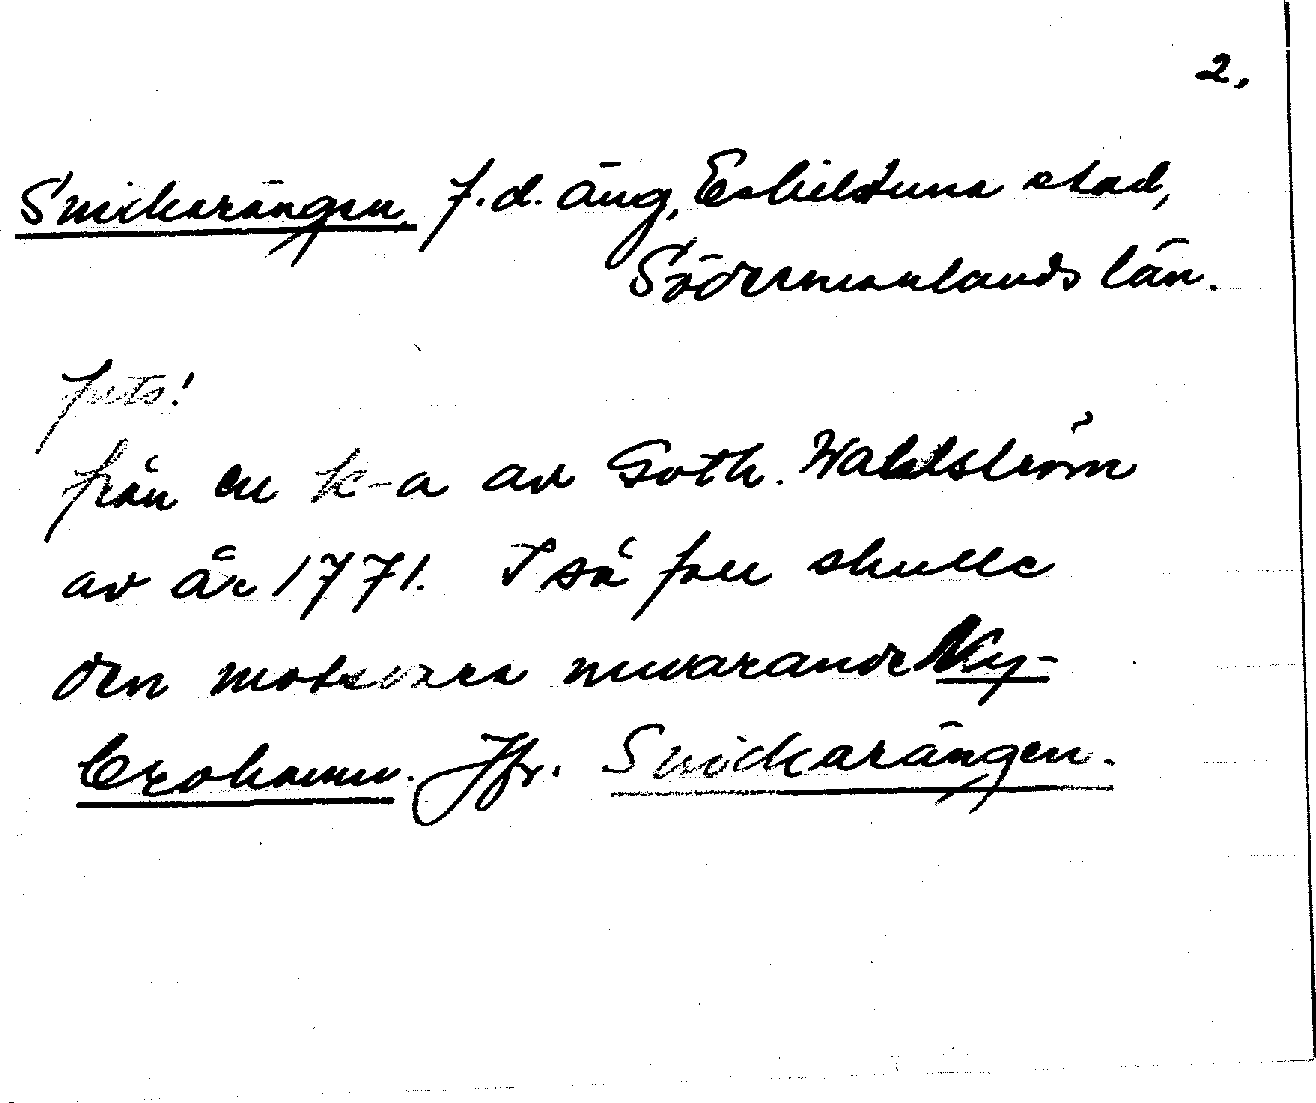 2.
Snikarängen, f.d. äng, Eskilstuna stad,
Södermanlands län.
forts!
från en k-a av Goth. Wahlström
av år 1771. I så fall skulle
den motsvara nuvarande Ny-
brohamn. Jfr. Snickarängen.